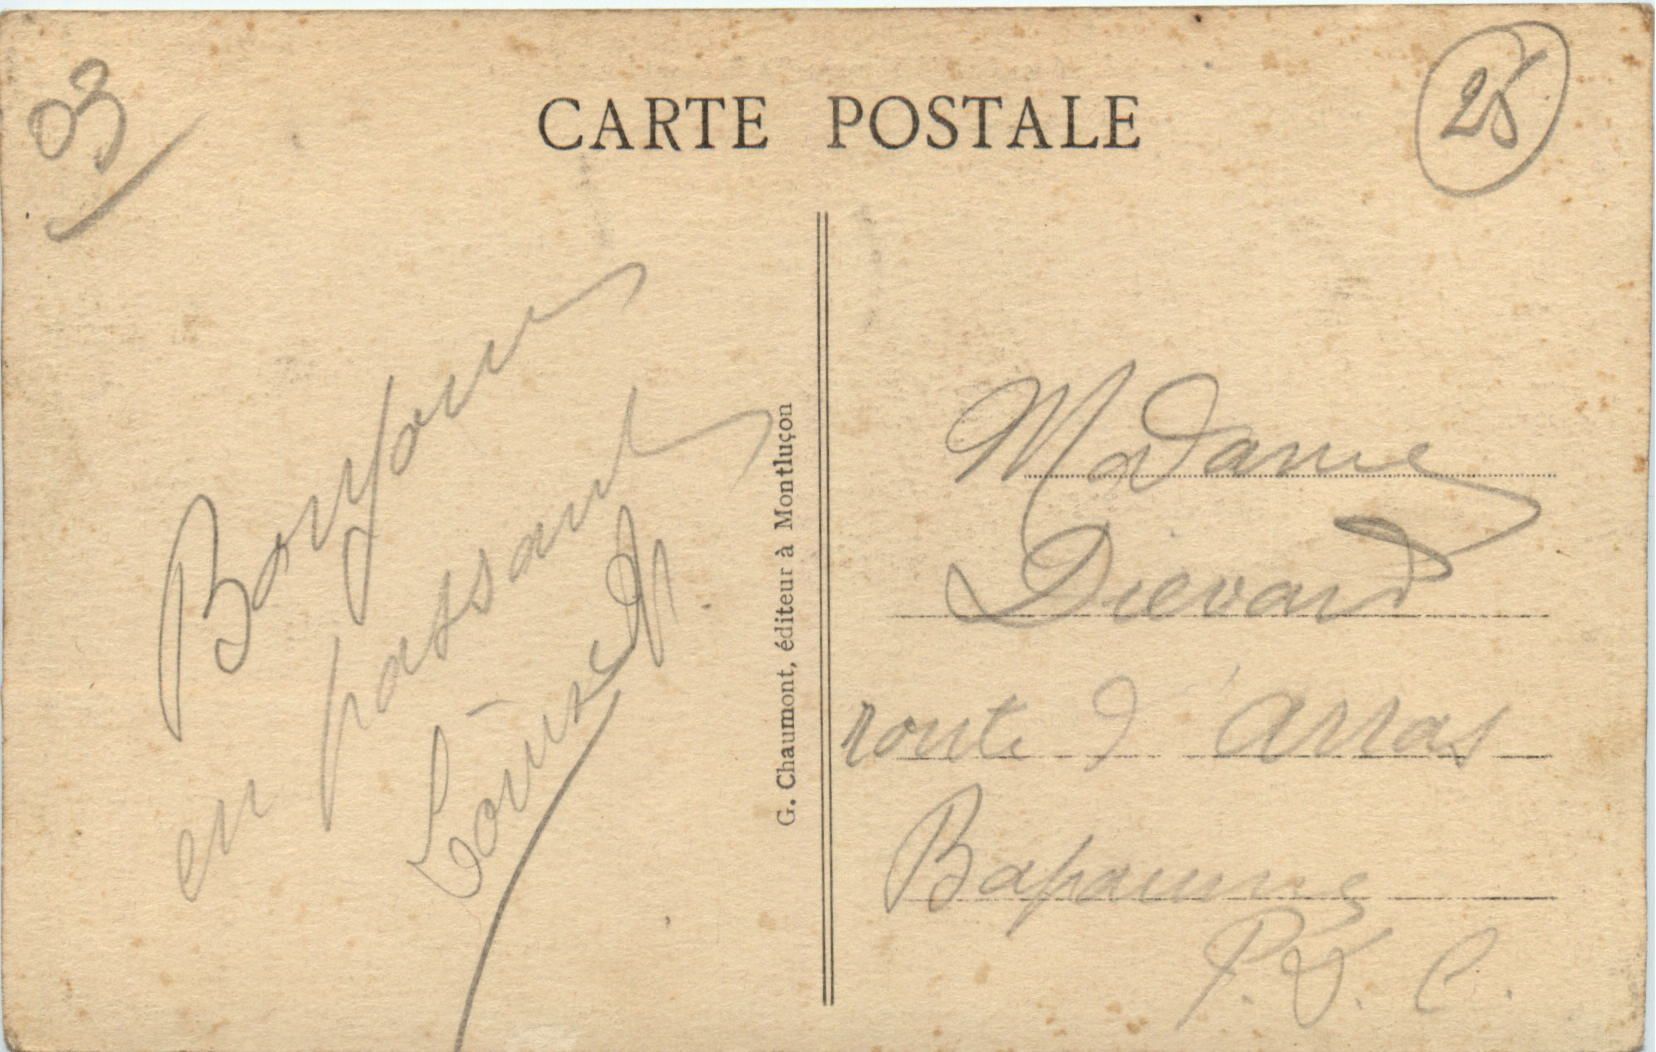 03
CARTE POSTALE
Bonjour
en passant
G. Chaumont, éditeur à Montluçon
Madame
Dievard
route d'Arras
Bapaume
P. d. C.